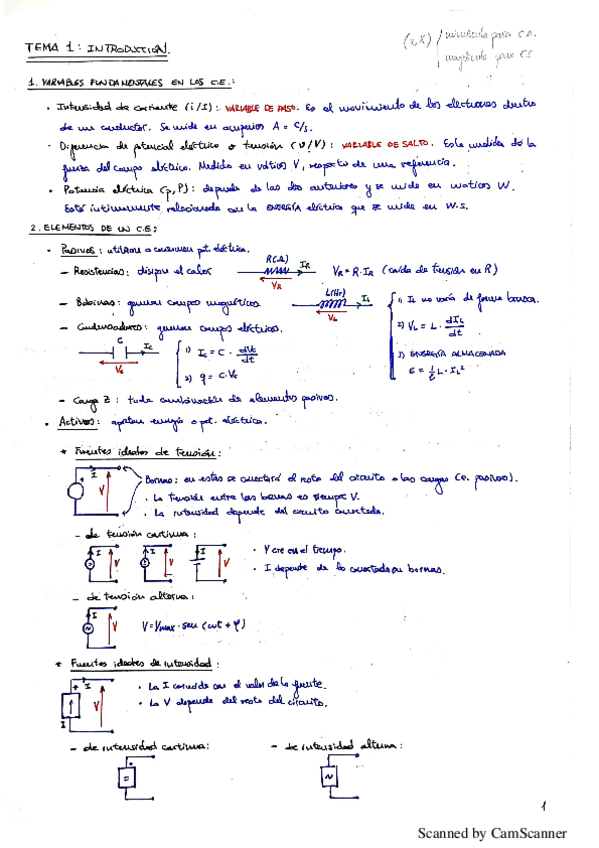 TEMA 1: INTRODUCCIÓN.
(x,X) / minúscula para C.A.
mayúscula para CC
1. VARIABLES FUNDAMENTALES EN LOS C.E.:
· Intensidad de corriente (i/I): VARIABLE DE PASO. Es el movimiento de los electrones dentro
de un conductor. Se mide en amperios A = C/s.
· Diferencia de potencial eléctrico o tensión (v/V): VARIABLE DE SALTO. Es la medida de la
fuerza del campo eléctrico. Medido en voltios V, respecto de una referencia.
· Potencia eléctrica (p, P): depende de las dos anteriores y se mide en watios W.
Está íntimamente relacionada con la ENERGÍA eléctrica que se mide en W.S.
2. ELEMENTOS DE UN C.E:
· Pasivos: utilizan o consumen pot. eléctrica.
– Resistencias: disipan el calor
R(Ω) IR
VR
VR = R·IR (caída de tensión en R)
– Bobinas: generan campos magnéticos.
L(Hr) IL
VL
1) IL no varía de forma brusca.
2) VL = L · dIL/dt
3) ENERGÍA ALMACENADA
E = 1/2 L · IL²
– Condensadores: generan campos eléctricos.
C IC
VC
1) IC = C · dVC/dt
2) q = C·VC
– Carga Z: toda combinación de elementos pasivos.
· Activos: aportan energía o pot. eléctrica.
* Fuentes ideales de tensión:
+ I V
Bornas: en estas se conectará el resto del circuito o las cargas (e. pasivos).
· La tensión entre las bornas es siempre V.
· La intensidad depende del circuito conectado.
– de tensión continua:
I V I V I V
· V cte en el tiempo.
· I depende de lo conectado en bornas.
– de tensión alterna:
I V
V = Vmax · sen (wt + φ)
* Fuentes ideales de intensidad:
+ I V
I
· La I coincide con el valor de la fuente.
· La V depende del resto del circuito.
– de intensidad continua:
– de intensidad alterna:
1
Scanned by CamScanner